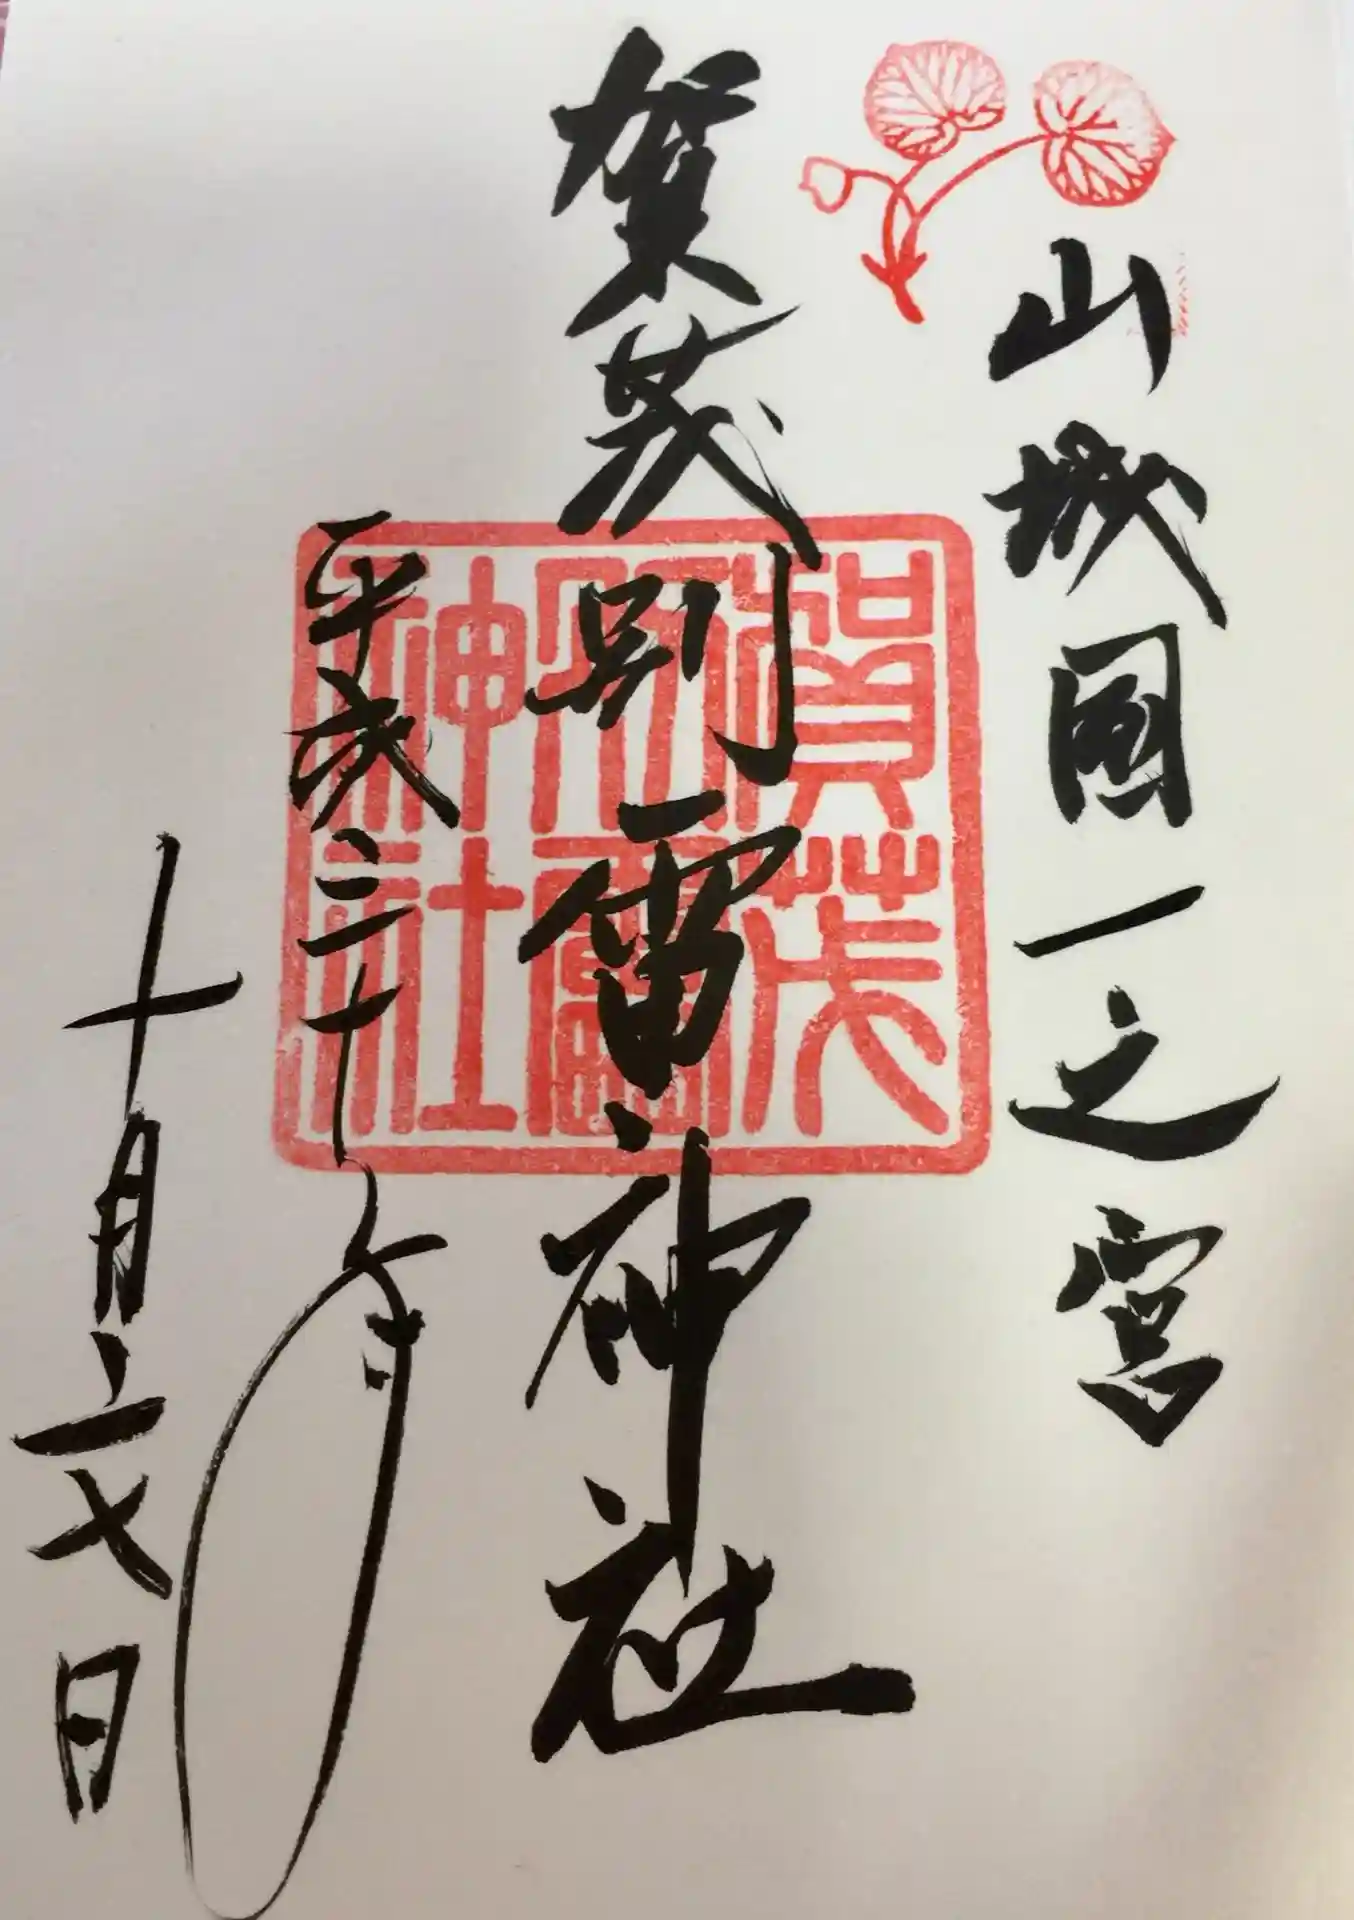 山城國一之宮
賀茂別雷神社
平成三十年
十月二七日
賀茂
別雷
神社